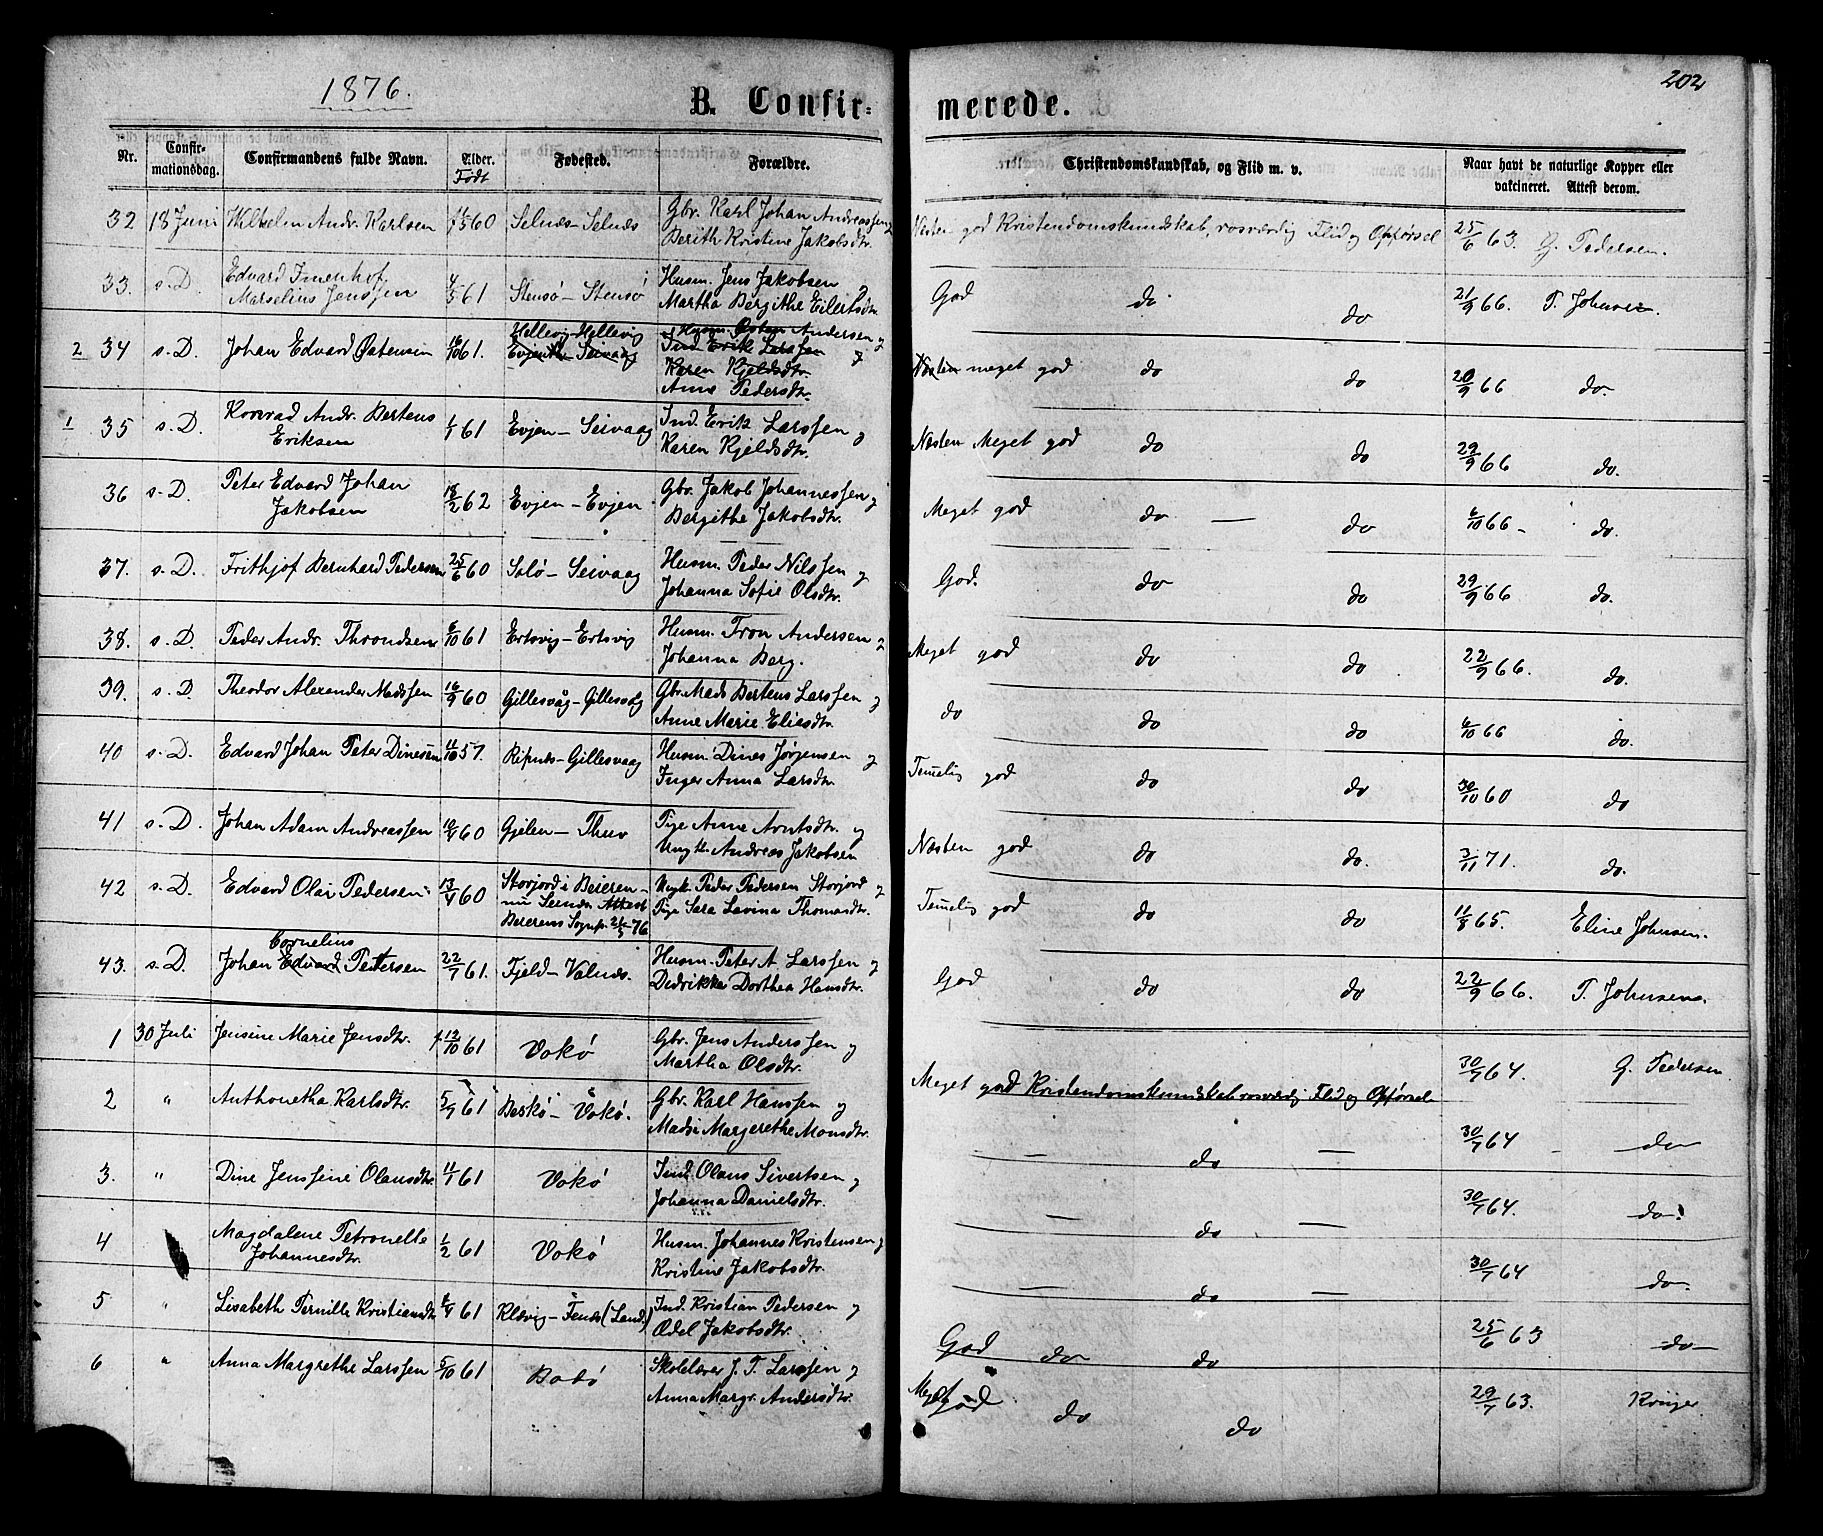 1876.
202
B. Confir=
merede.
Nr.
Confirmationsdag.
Confirmandens fulde Navn.
Alder. Født
Fødested.
Forældre.
Christendomskundskab, og Flid m. v.
Naar havt de naturlige Kopper eller vakcineret. Attest derom.
32 18 Juni Wilhelm Andr. Karlsen 60 Selnæs - Selnæs Gbr. Karl Johan Andreassen og
Berith Kristine Jakobsdtr.
Næsten god Kristendomskundskab, rosværdig Flid og Opførsel 25/6 63. G. Pedersen.
33. s. D. Edvard Imenhof
Marselius Jenssen 4/5 61 Stensø - Stensø Husm. Jens Jakobsen
Martha Bergithe Eilertsdtr.
God do do 21/9 66. T. Johnsen.
2 34 s. D. Johan Edvard Østensen 16/10 61. Hellevig - Hellevig
Evjen - Seivaag
Husm. Østen Andersen og
Ind. Erik Larssen og
Karen Kjeldsdtr.
Anne Pedersdtr.
Næsten meget god do do 20/9 66 do.
1 35 s. D. Konrad Andr. Bertens
Eriksen 61 Evjen - Seivaag Ind. Erik Larssen og
Karen Kjeldsdtr.
Næsten Meget god do do 22/9 66 do.
36 s. D. Peter Edvard Johan
Jakobsen 18/2 62 Evjen - Evjen Gbr. Jakob Johannessen og
Bergithe Jakobsdtr.
Meget god do — do 6/10 66 - do.
37. s. D. Frithjof Bernhard Pedersen 25/6 60 Solø - Seivaag Husm. Peder Nilssen og
Johanna Sofie Olsdtr.
God. do do 29/9 66 do.
38. s. D. Peder Andr. Throndsen 6/10 61 Ertsvig - Ertsvig Husm. Tron Andersen og
Johanna Berg.
Meget god do do 22/9 66. do.
39. s. D. Theodor Alexander Madssen 16/9 60 Gillesvåg - Gillesvåg Gbr. Mads Bertens Larssen og
Anne Marie Eliasdtr.
do do do 6/10 66 do.
40 s. D. Edvard Johan Peter Dinesen 11/10 57. Ripnæs - Gillesvaag Husm. Dines Jørgensen og
Inger Anna Larsdtr.
Temelig god do do 30/10 60 do
41 s. D. Johan Adam Andreassen 10/4 60 Gjelen - Thuv Pige Anne Arntsdtr. og
Ungk. Andreas Jakobsen
Næsten god do do. 3/11 71. do.
42 s. D. Edvard Olai Pedersen 13/4 60 Storjord i Beieren -
nu Seines Attest
Beierens Sognepr. 76
Ungk. Peder Pedersen Storjord og
Pige Sara Lavina Thomasdtr.
Temelig god do do 11/8 65. Eline Johnsen.
43. s. D. Cornelius
Johan Edvard Pettersen 22/7 61. Fjeld - Valnæs. Husm. Peter A Larssen og
Didrikke Dorthea Hansdtr.
God do do 22/9 66. T. Johnsen.
1 30 Juli Jensine Marie Jensdtr. 12/10 61 Vokø Gbr. Jens Anderssen og
Martha Olsdtr.
Meget god Kristendomskundskab rosværdig Flid og Opførsel 30/7 64. G. Pedersen
2 " Anthonetha Karlsdtr. 5/9 61 Beskø - Vokø. Gbr. Karl Hanssen og
Madsi Margrethe Monsdtr.
— do — 30/7 64 do
3. " Dine Jenssine Olausdtr. 11/1 61 Vokø Ind. Olaus Sivertsen og
Johanna Danielsdtr.
— do — 30/7 64. do.
4 Magdalene Petronelle
Johannesdtr. 1/2 61 Vokø Husm. Johannes Kristensen og
Kristine Jakobsdtr.
— do — 30/7 64 do.
5 " Lisabeth Pernille Kristiansdtr 61 Klævig - Fenes (Land.) Ind. Kristian Pedersen og
Ædel Jakobsdtr.
God do do 25/6 63 do
6 " Anna Margrethe Larssen 5/10 61 Bodø Skolelærer J. P. Larssen og
Anna Margr. Andersdtr.
Meget God do do 29/7 63. Krüger